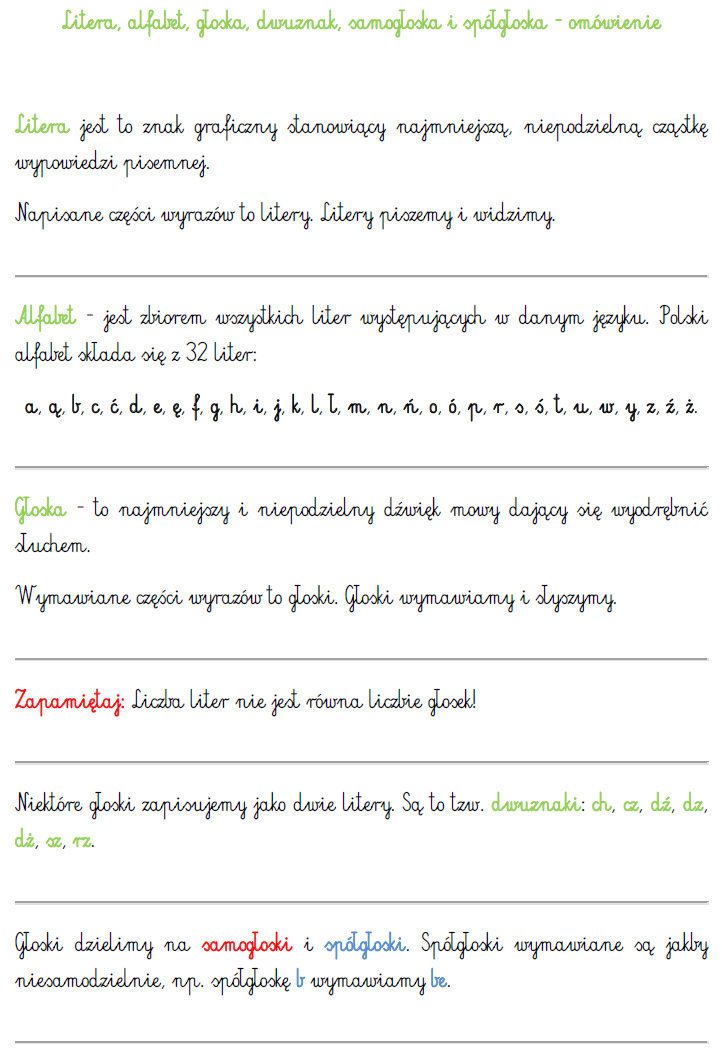 Litera, alfabet, głoska, dwuznak, samogłoska i spółgłoska - omówienie
Litera jest to znak graficzny stanowiący najmniejszą, niepodzielną cząstkę
wypowiedzi pisemnej.
Napisane części wyrazów to litery. Litery piszemy i widzimy.
Alfabet - jest zbiorem wszystkich liter występujących w danym języku. Polski
alfabet składa się z 32 liter:
a, ą, b, c, ć, d, e, ę, f, g, h, i, j, k, l, ł, m, n, ń, o, ó, p, r, s, ś, t, u, w, y, z, ź, ż.
Głoska - to najmniejszy i niepodzielny dźwięk mowy dający się wyodrębnić
słuchem.
Wymawiane części wyrazów to głoski. Głoski wymawiamy i słyszymy.
Zapamiętaj: Liczba liter nie jest równa liczbie głosek!
Niektóre głoski zapisujemy jako dwie litery. Są to tzw. dwuznaki: ch, cz, dź, dz,
dż, sz, rz.
Głoski dzielimy na samogłoski i spółgłoski. Spółgłoski wymawiane są jakby
niesamodzielnie, np. spółgłoskę b wymawiamy be.